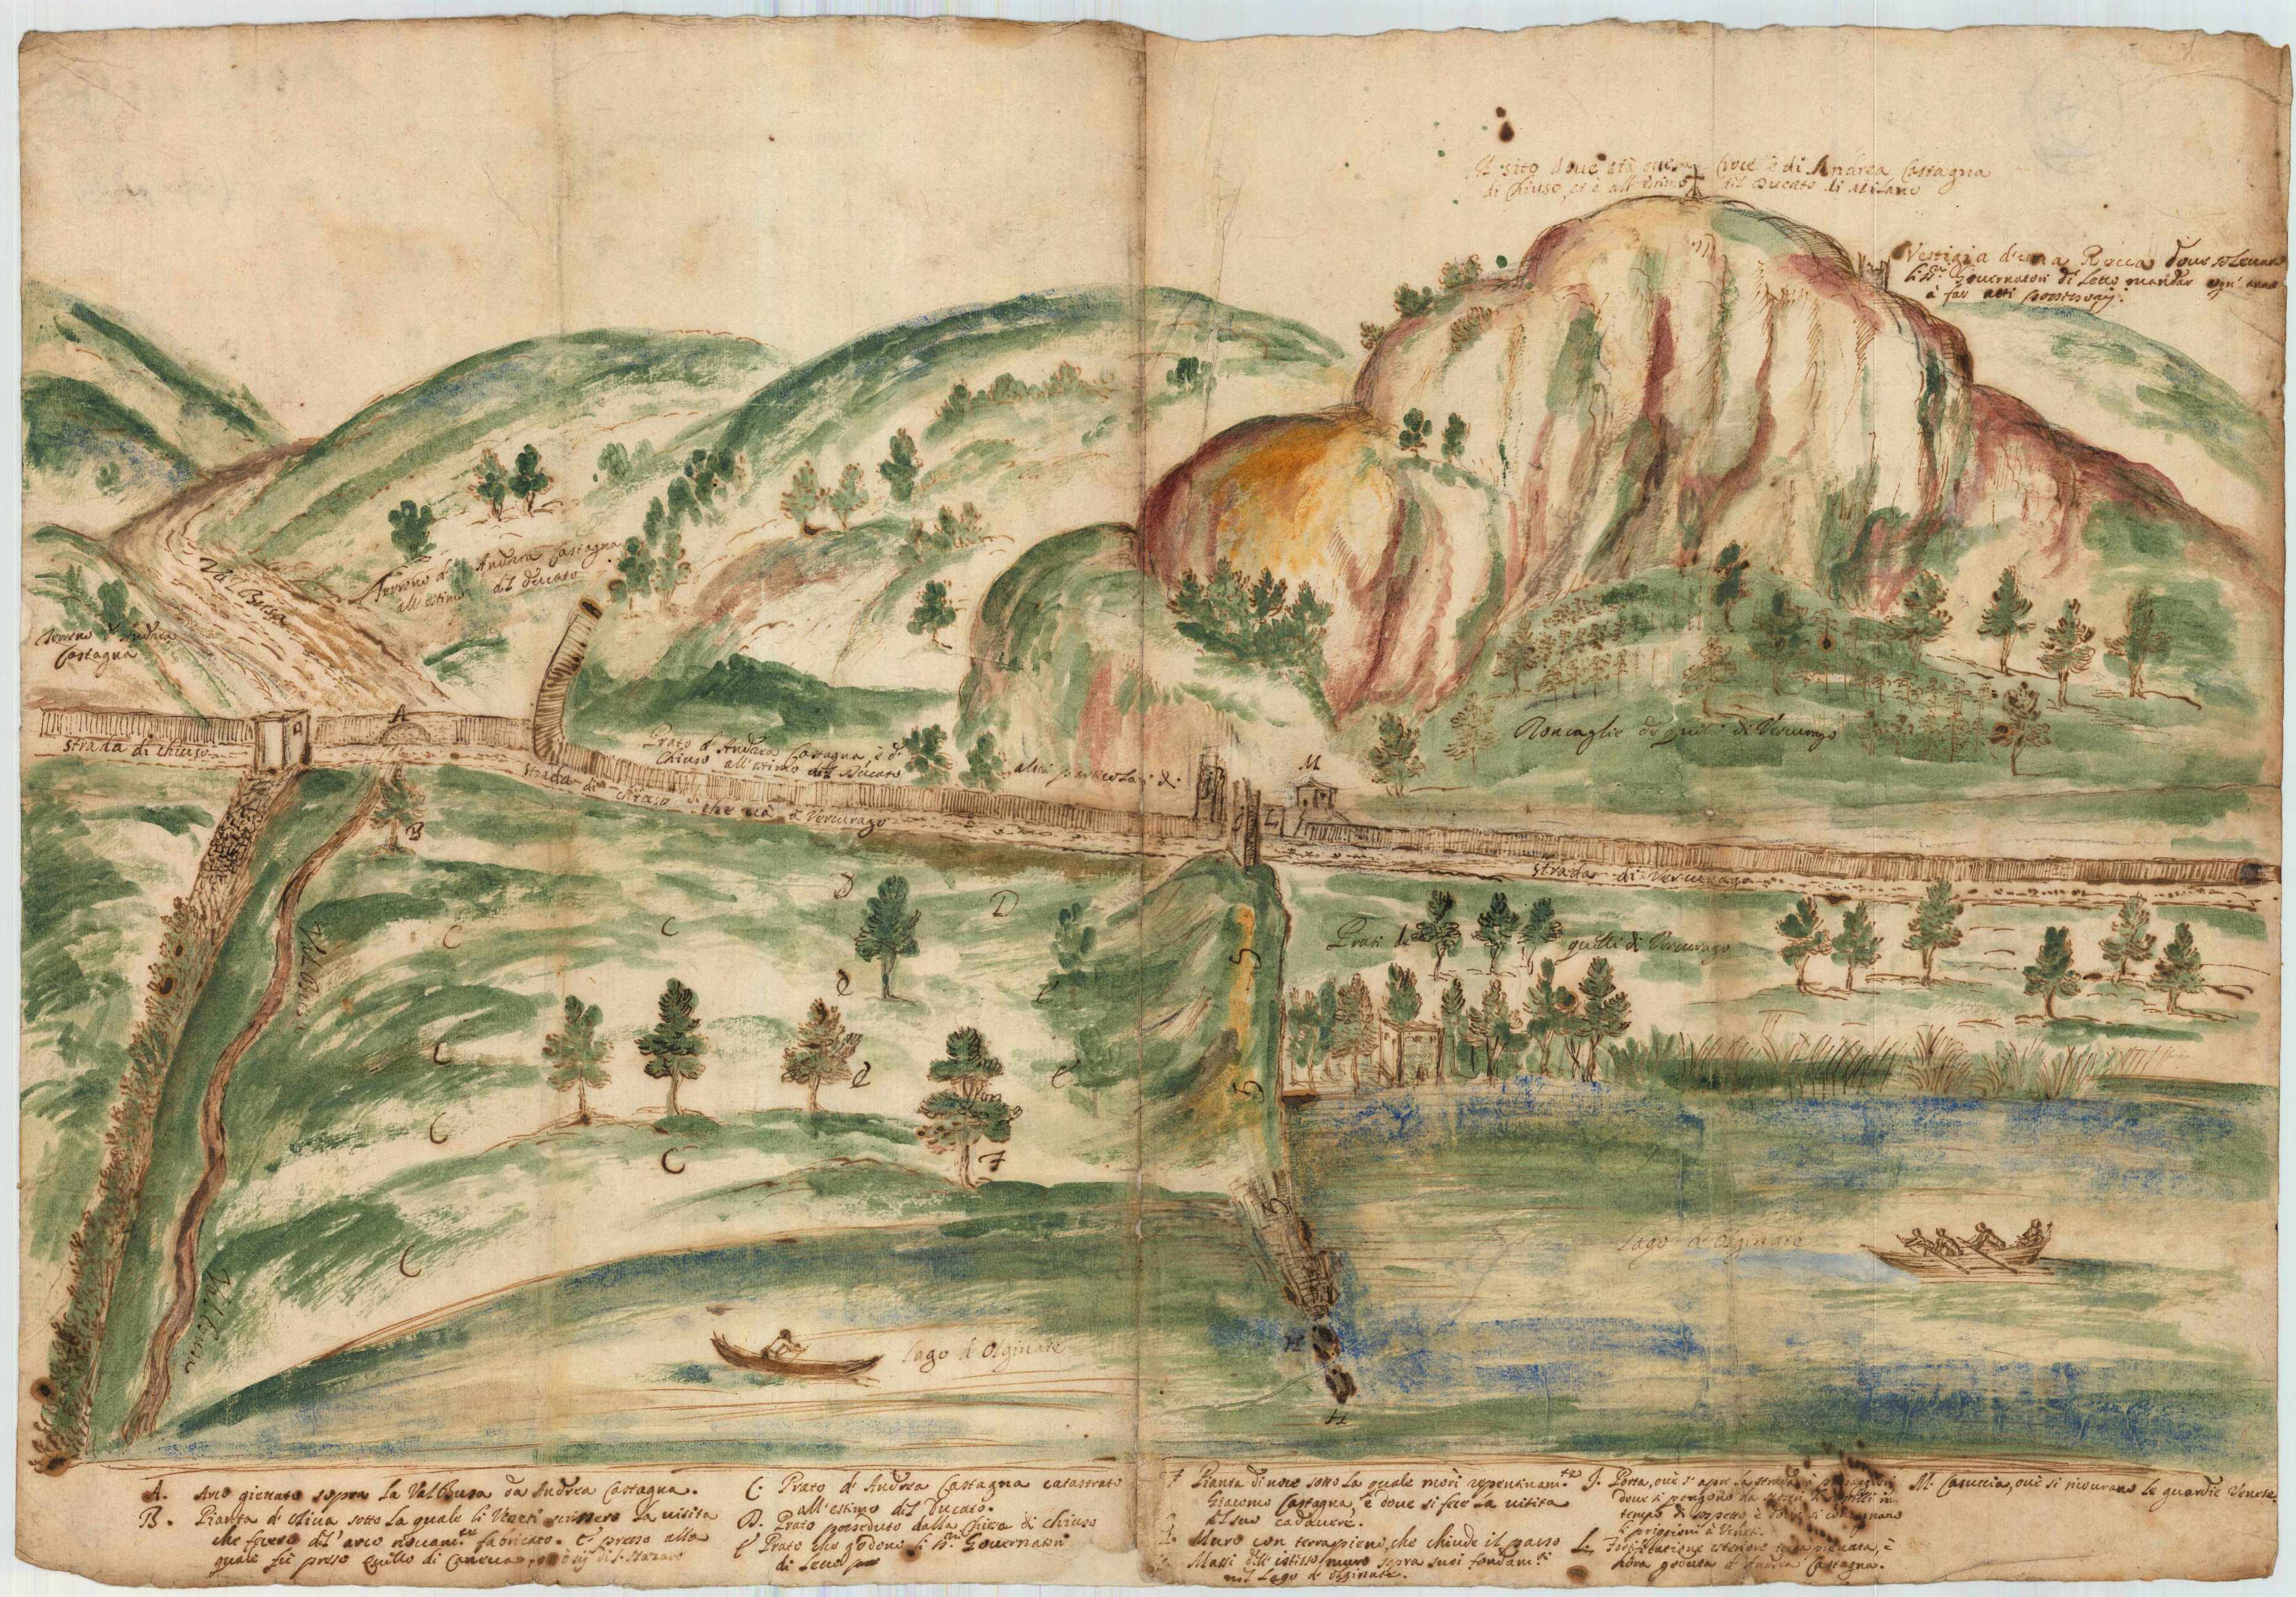 Il sito doue stà Croce è di Andrea Castagna
di Chiuso, et è all'estimo dil Ducato di Milano
Vestigia d'una Rocca doue
Gouernatori di Lecco mandar ogn' anno
à far atti
Val Busa
Terreno d' Andrea Castagna
all'estimo dil Ducato
Terreno d' Andrea
Castagna
A
strada di chiuso
Prato d' Andrea Castagna, è di
Chiuso all'estimo dil Ducato
altri particolari &.
M
L
strada di chiuso che uà à Vercurago
Roncaglie de quelli di Vercurago
strada di Vercurago
B
D
D
C
C
Prati de quelli di Vercurago
E
E
C
E
E
C
C
F
C
G
G
G
Lago d' Olginate
Lago d' Olginate
H
H
A. Arco giettato sopra la Val Busa da Andrea Castagna.
B. Pianta d' oliua sotto la quale li Veneti scrissero la uisita
che fecero dil' arco fabricato. È presso alla
quale fù preso quello di
C. Prato d' Andrea Castagna catastrato
all'estimo dil Ducato.
D. Prato posseduto dalla Chiesa di chiuso
E Prato che godono li Gouernatori
di Lecco
F Pianta di noce sotto la quale morì repentinam.te
Giacomo Castagna, è doue si fece la uisita
dil suo cadauere.
G. Muro con terrapieno, che chiude il passo
Massi dell' istesso muro sopra suoi fondam.ti
nel Lago d' Olginate.
I. Porta, oue s' apre la strada
doue si pongono
tempo di sospetto è doue si consegnano
li priggioni à Veneti.
L. Fortificatione esteriore è
hora goduta d' Andrea Castagna.
M. Casuccia, oue si ricourano le guardie Venete.